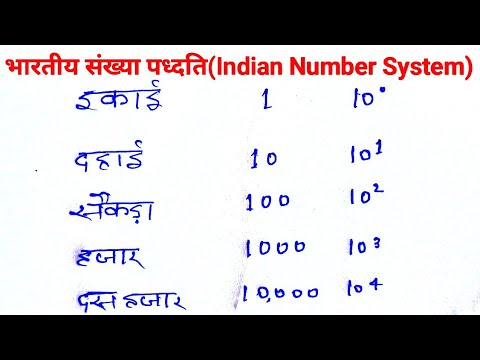 भारतीय संख्या पध्दति(Indian Number System)
इकाई 1 10⁰
दहाई 10 10¹
सैकड़ा 100 10²
हजार 1000 10³
दस हजार 10,000 10⁴